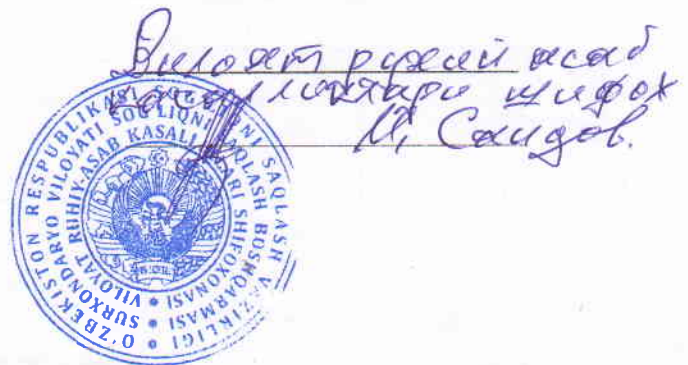 Вилоят рухий асаб
касалликлари шифох
М, Саидов.
O'ZBEKISTON RESPUBLIKASI SOG'LIQNI SAQLASH VAZIRLIGI
SURXONDARYO VILOYATI SOG'LIQNI SAQLASH BOSHQARMASI
VILOYAT RUHIY-ASAB KASALLIKLARI SHIFOXONASI